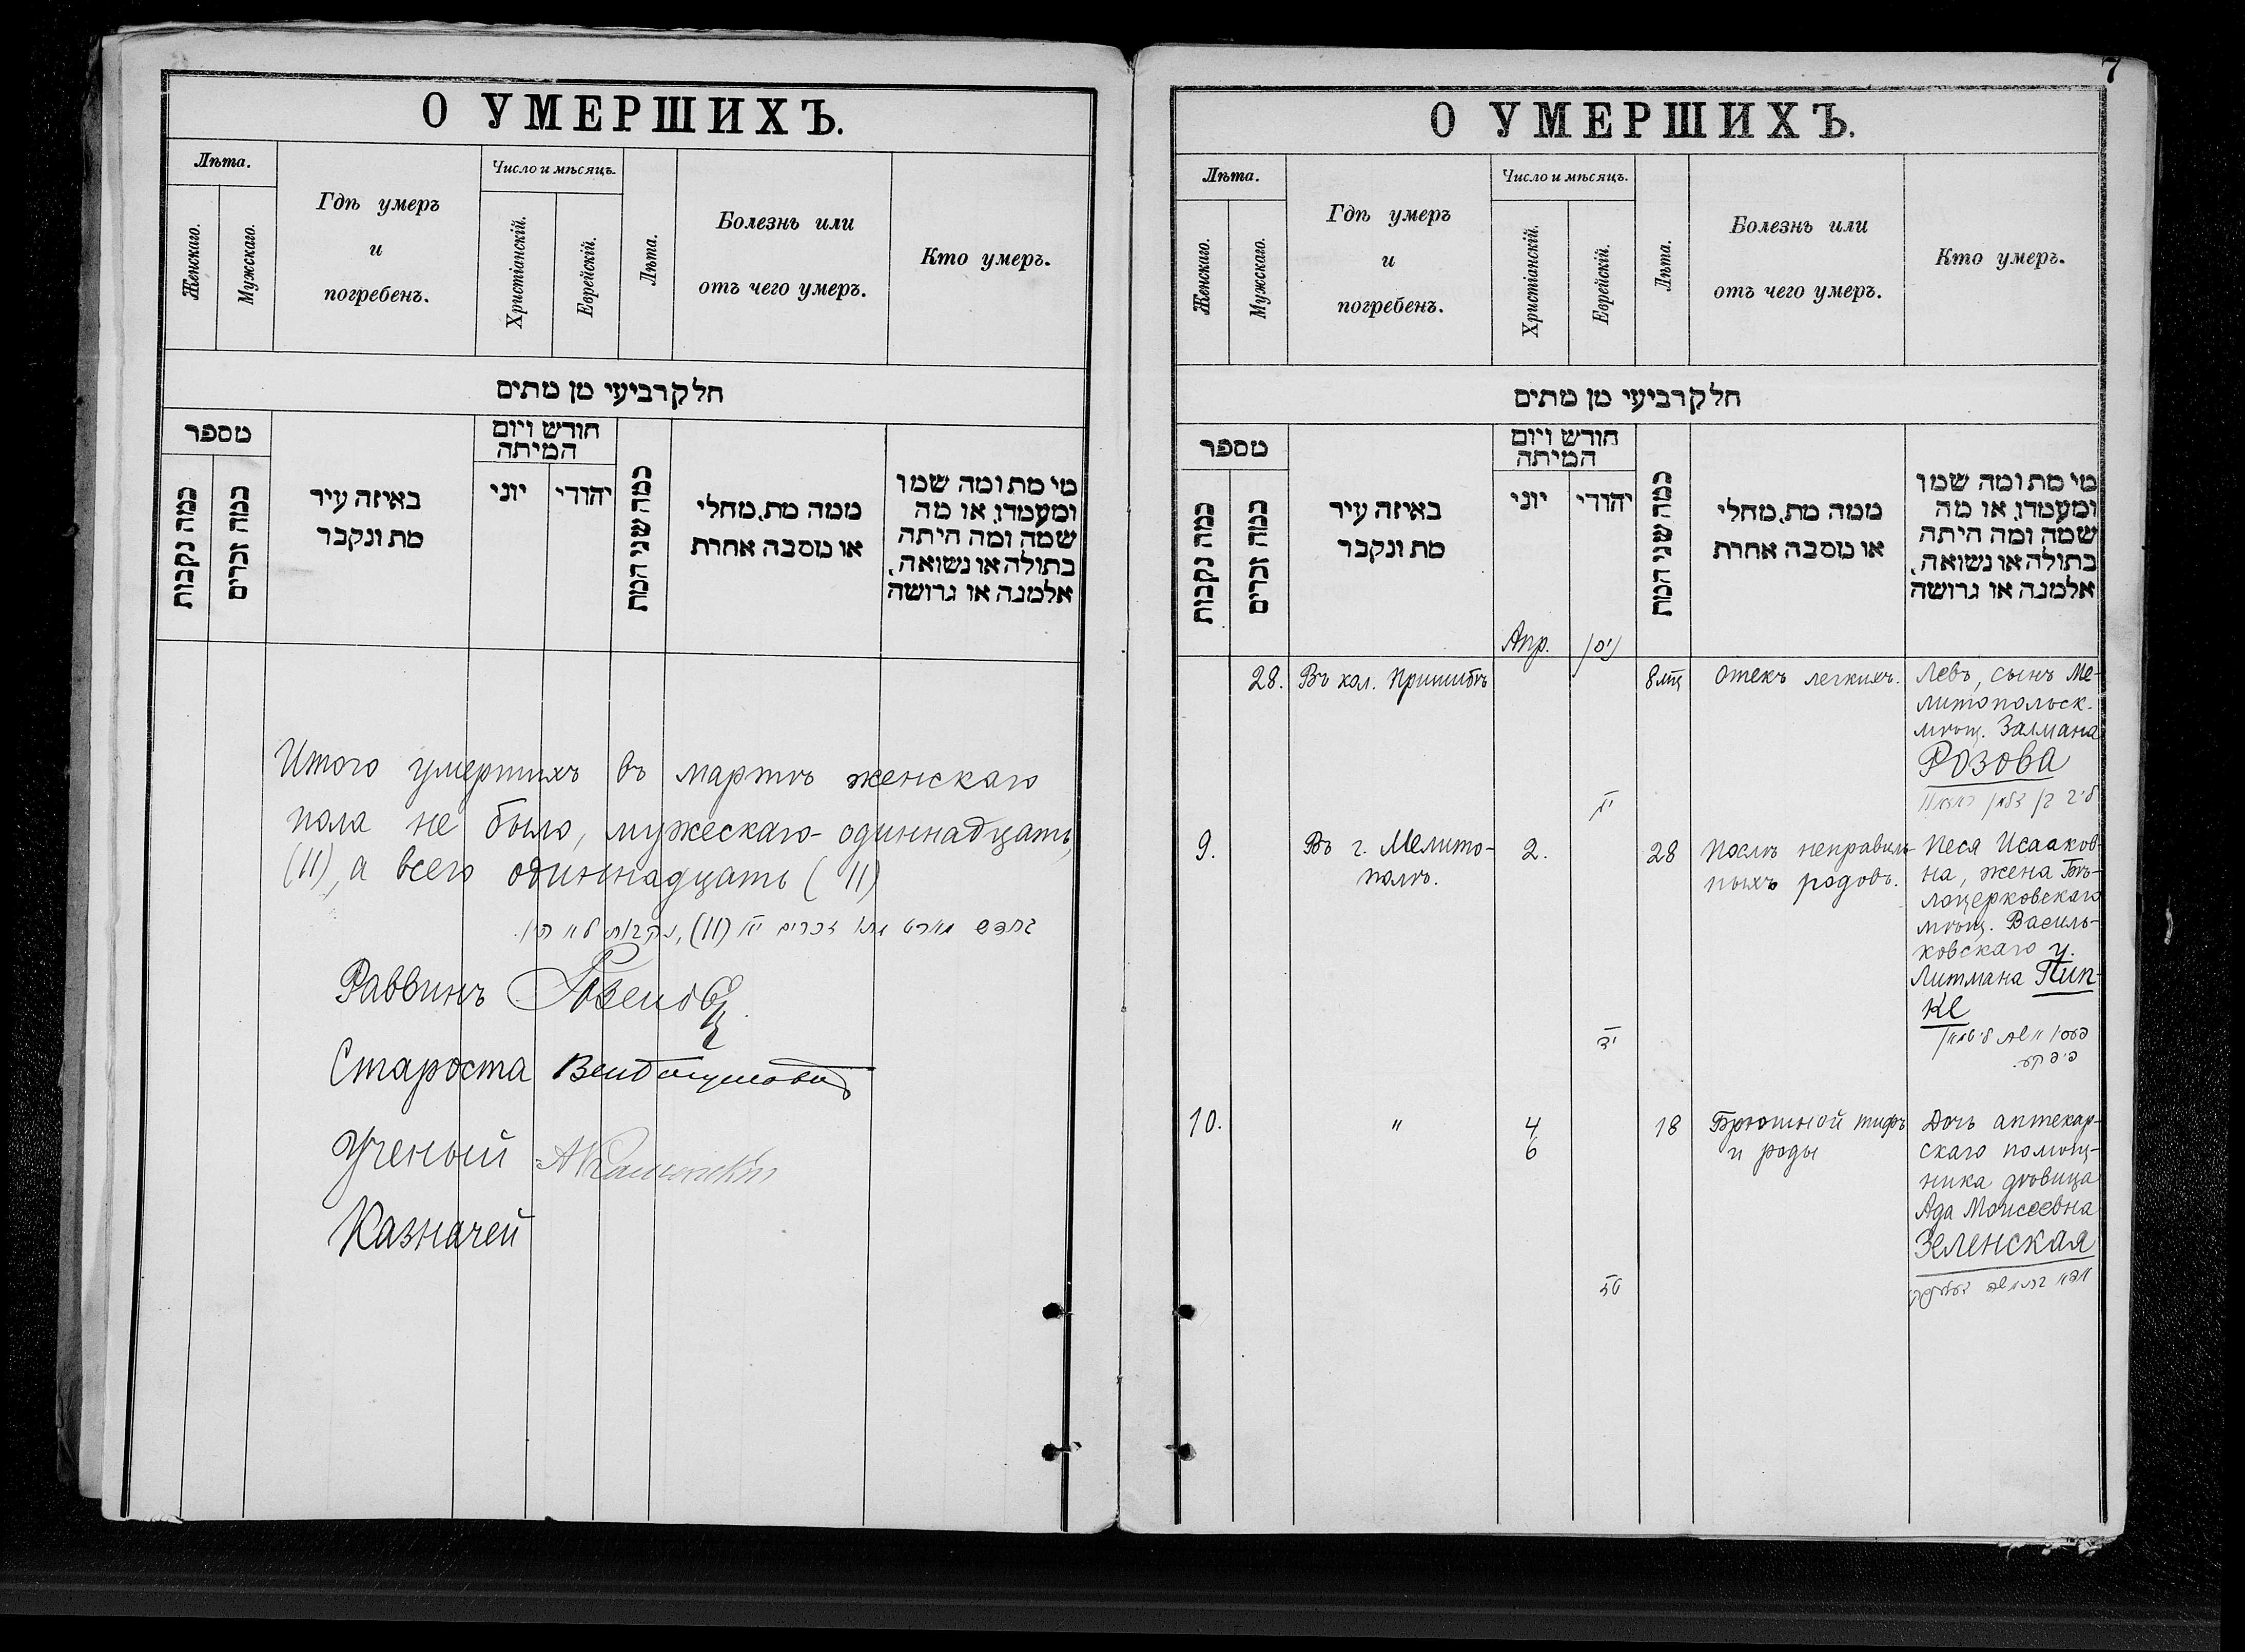 О УМЕРШИХЪ.
Лѣта.
Женскаго.
Мужскаго.
Гдѣ умеръ
и
погребенъ.
Число и мѣсяцъ.
Христіанскій.
Еврейскій.
Лѣта.
Болезнь или
отъ чего умеръ.
Кто умеръ.
חלק רביעי מן מתים
מספר
כמה נקבות
כמה זכרים
באיזה עיר
מת ונקבר
חודש ויום
המיתה
יוני
יהודי
כמה שני המת
ממה מת, מחלי
או מסבה אחרת
מי מת ומה שמו
ומעמדו, או מה
שמה ומה היתה
בתולה או נשואה,
אלמנה או גרושה
Итого умершихъ въ мартѣ женскаго
пола не было, мужескаго- одиннадцать,
(11), а всего одиннадцать (11)
בחדש מארט מתו זכרים יא (11), נקבות לא היו.
Раввинъ
Староста
Ученый
Казначей
7
О УМЕРШИХЪ.
Лѣта.
Женскаго.
Мужскаго.
Гдѣ умеръ
и
погребенъ.
Число и мѣсяцъ.
Христіанскій.
Еврейскій.
Лѣта.
Болезнь или
отъ чего умеръ.
Кто умеръ.
חלק רביעי מן מתים
מספר
כמה נקבות
כמה זכרים
באיזה עיר
מת ונקבר
חודש ויום
המיתה
יוני
יהודי
כמה שני המת
ממה מת, מחלי
או מסבה אחרת
מי מת ומה שמו
ומעמדו, או מה
שמה ומה היתה
בתולה או נשואה,
אלמנה או גרושה
Апр. ניסן
28. Въ кол. Пришибѣ 8 мѣц Отекъ легкихъ. Левъ, сынъ Ме-
литопольск.
мѣщ. Залмана
Розова
ליב בן זלמן
9. Въ г. Мелито- 2. 28 Послѣ неправиль- Песя Исааков-
полѣ. ныхъ родовъ. на, жена Бѣ-
лоцерковскаго
мѣщ. Василь-
ковскаго у.
Литмана Пип-
ке
יד
פעסי אשת ליטמאן
פיפקע.
10. " 4 18 Брюшной тифъ Дочь аптекар-
6 и роды скаго помощ-
ника дѣвица
Ада Моисеевна
Зеленская
טז